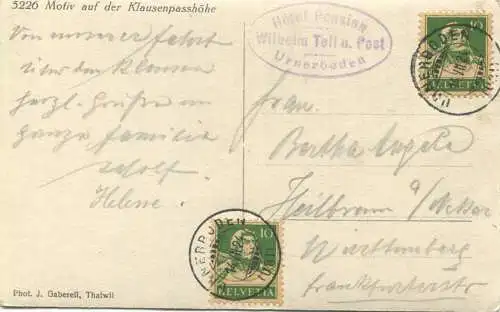 5226 Motiv auf der Klausenpasshöhe
Von unserer Fahrt
über den Klausen
herzl. Grüße an
ganze Familie
Adolf.
Helene.
Phot. J. Gaberell, Thalwil
Hôtel Pension
Wilhelm Tell u. Post
Urnerboden
Frau
Bertha
Heilbronn a/Neckar
Württemberg
Frankfurterstr
URNERBODEN
(URI)
10
HELVETIA
URNERBODEN
(URI)
10
HELVETIA